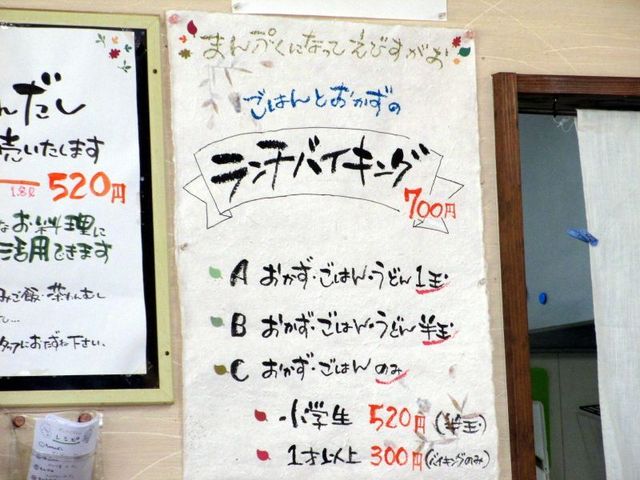 んだし
売いたします
1.8ℓ 520円
なお料理に
活用できます
みご飯・茶わんむし
タッフにおたずね下さい。
レシピ
まんぷくになってえびすがお
ごはんとおかずの
ランチバイキング
700円
A おかず・ごはん・うどん1玉
B おかず・ごはん・うどん半玉
C おかず・ごはんのみ
小学生 520円(半玉)
1才以上 300円(バイキングのみ)